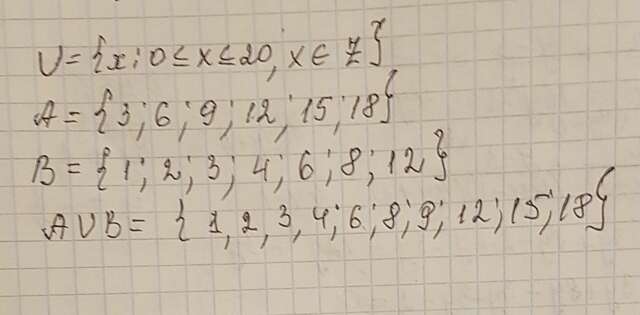 U = {x: 0 ≤ x ≤ 20, x ∈ Z}
A = {3; 6; 9; 12; 15; 18}
B = {1; 2; 3; 4; 6; 8; 12}
A U B = {1, 2, 3, 4; 6; 8; 9; 12; 15; 18}